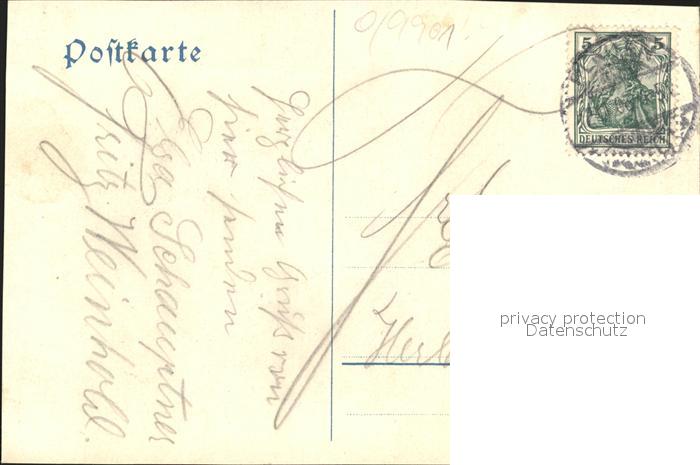 Postkarte
0/9901
5 5
DEUTSCHES REICH
Herzlichen Gruß von
hier senden
Elsa Schauptner
Fritz Weinhold.
privacy protection
Datenschutz